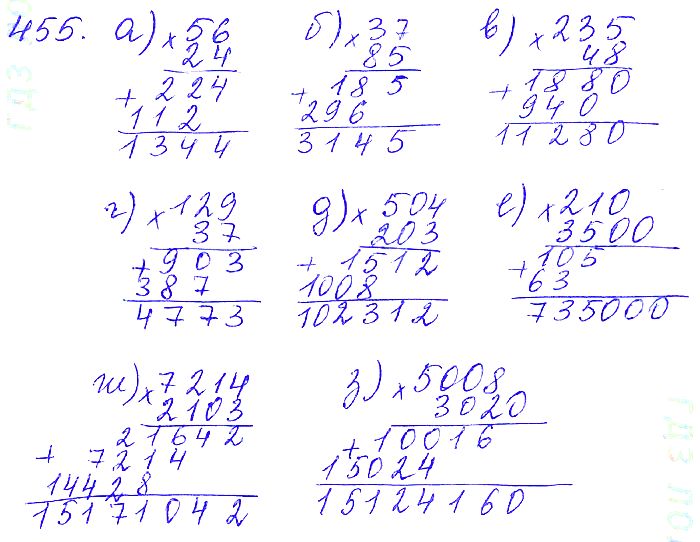 455. а) × 56 б) × 37 в) × 235
24 85 48
+ 224 + 185 + 1880
112 296 940
1344 3145 11280
г) × 129 д) × 504 е) × 210
37 203 3500
+ 903 + 1512 + 105
387 1008 63
4773 102312 735000
ж) × 7214 з) × 5008
2103 3020
21642 + 10016
+ 7214 15024
14428 15124160
15171042